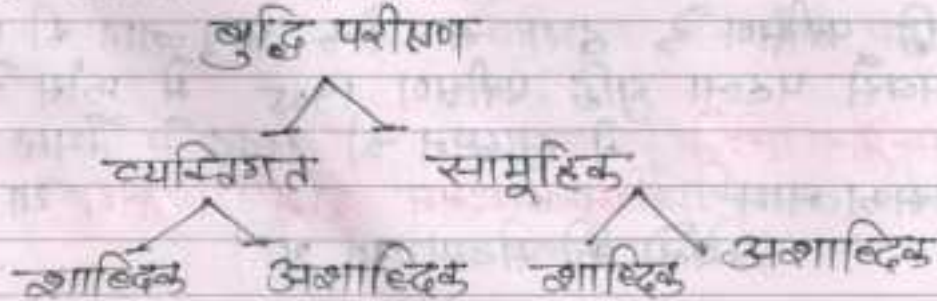 बुद्धि परीक्षण
व्यक्तिगत सामूहिक
शाब्दिक अशाब्दिक शाब्दिक अशाब्दिक